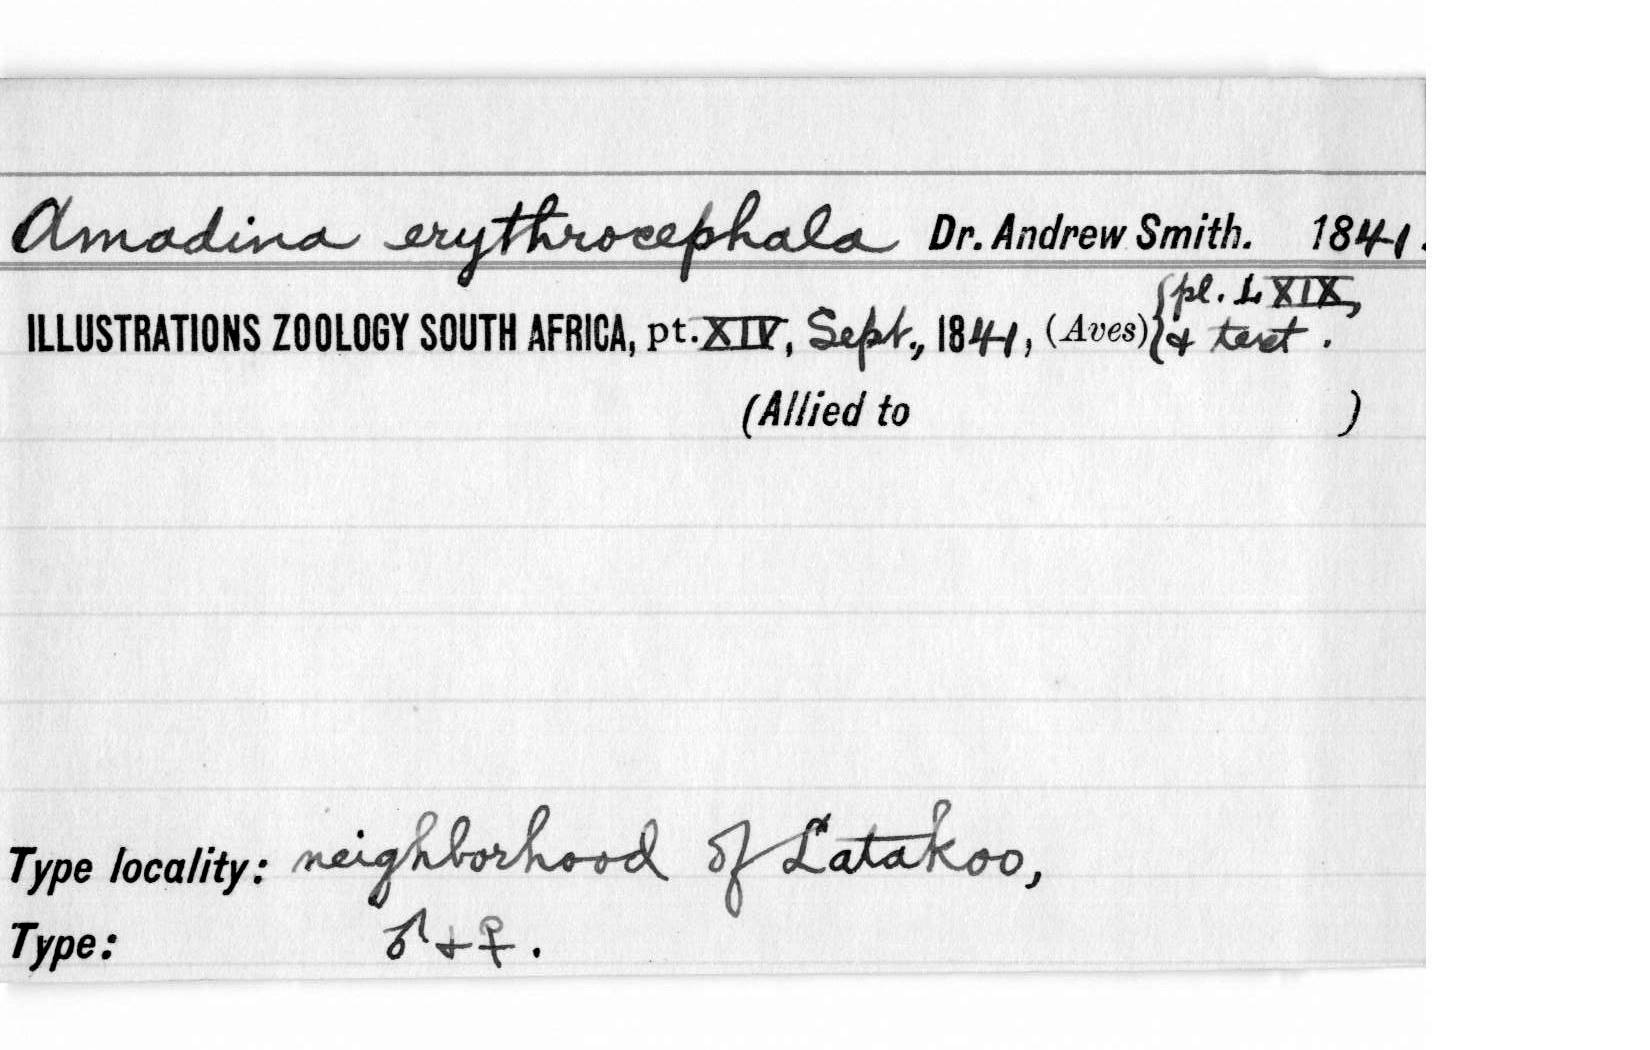 Amadina erythrocephala Dr. Andrew Smith. 1841.
ILLUSTRATIONS ZOOLOGY SOUTH AFRICA, pt. XIV, Sept., 1841, (Aves) { pl. LXIX,
& text.
(Allied to )
Type locality: neighborhood of Latakoo,
Type: ♂ & ♀.